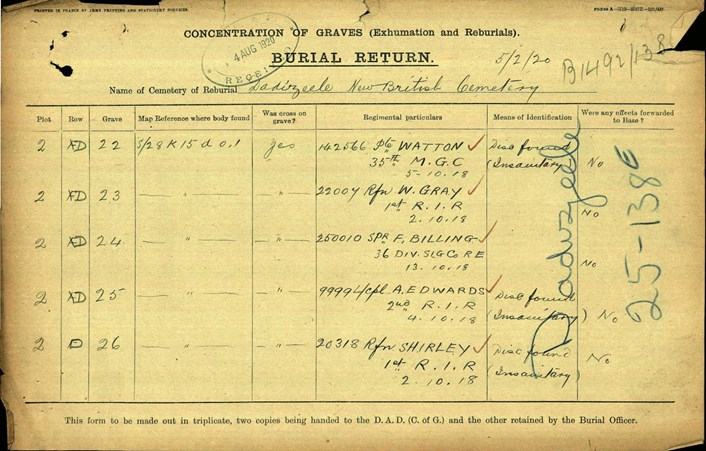 PRINTED IN FRANCE BY ARMY PRINTING AND STATIONERY SERVICES.
CONCENTRATION OF GRAVES (Exhumation and Reburials).
BURIAL RETURN.
4 AUG 1920
5/2/20
B1492/138
Name of Cemetery of Reburial Dadizeele New British Cemetery
Plot Row Grave Map Reference where body found Was cross on grave? Regimental particulars Means of Identification Were any effects forwarded to Base?
2 D 22 S/28 K 15 d 0.1 yes 142566 Pte WATTON Disc found
35th M.G.C (Insanitary No
5-10.18
2 D 23 — " — — " — 22007 Rfn W. GRAY
1st R.I.R No
2.10.18
2 D 24 — " — — " — 250010 SPR F. BILLING
36 DIV. SLG Co RE No
13.10.18
2 D 25 — " — — " — 9999 L/cpl A. EDWARDS Disc found
2nd R.I.R (Insanitary) No
4.10.18
2 D 26 — " — — " — 20318 Rfn SHIRLEY Disc found No
1st R.I.R (Insanitary)
2.10.18
Dadizeele
25-138E
This form to be made out in triplicate, two copies being handed to the D.A.D. (C. of G.) and the other retained by the Burial Officer.